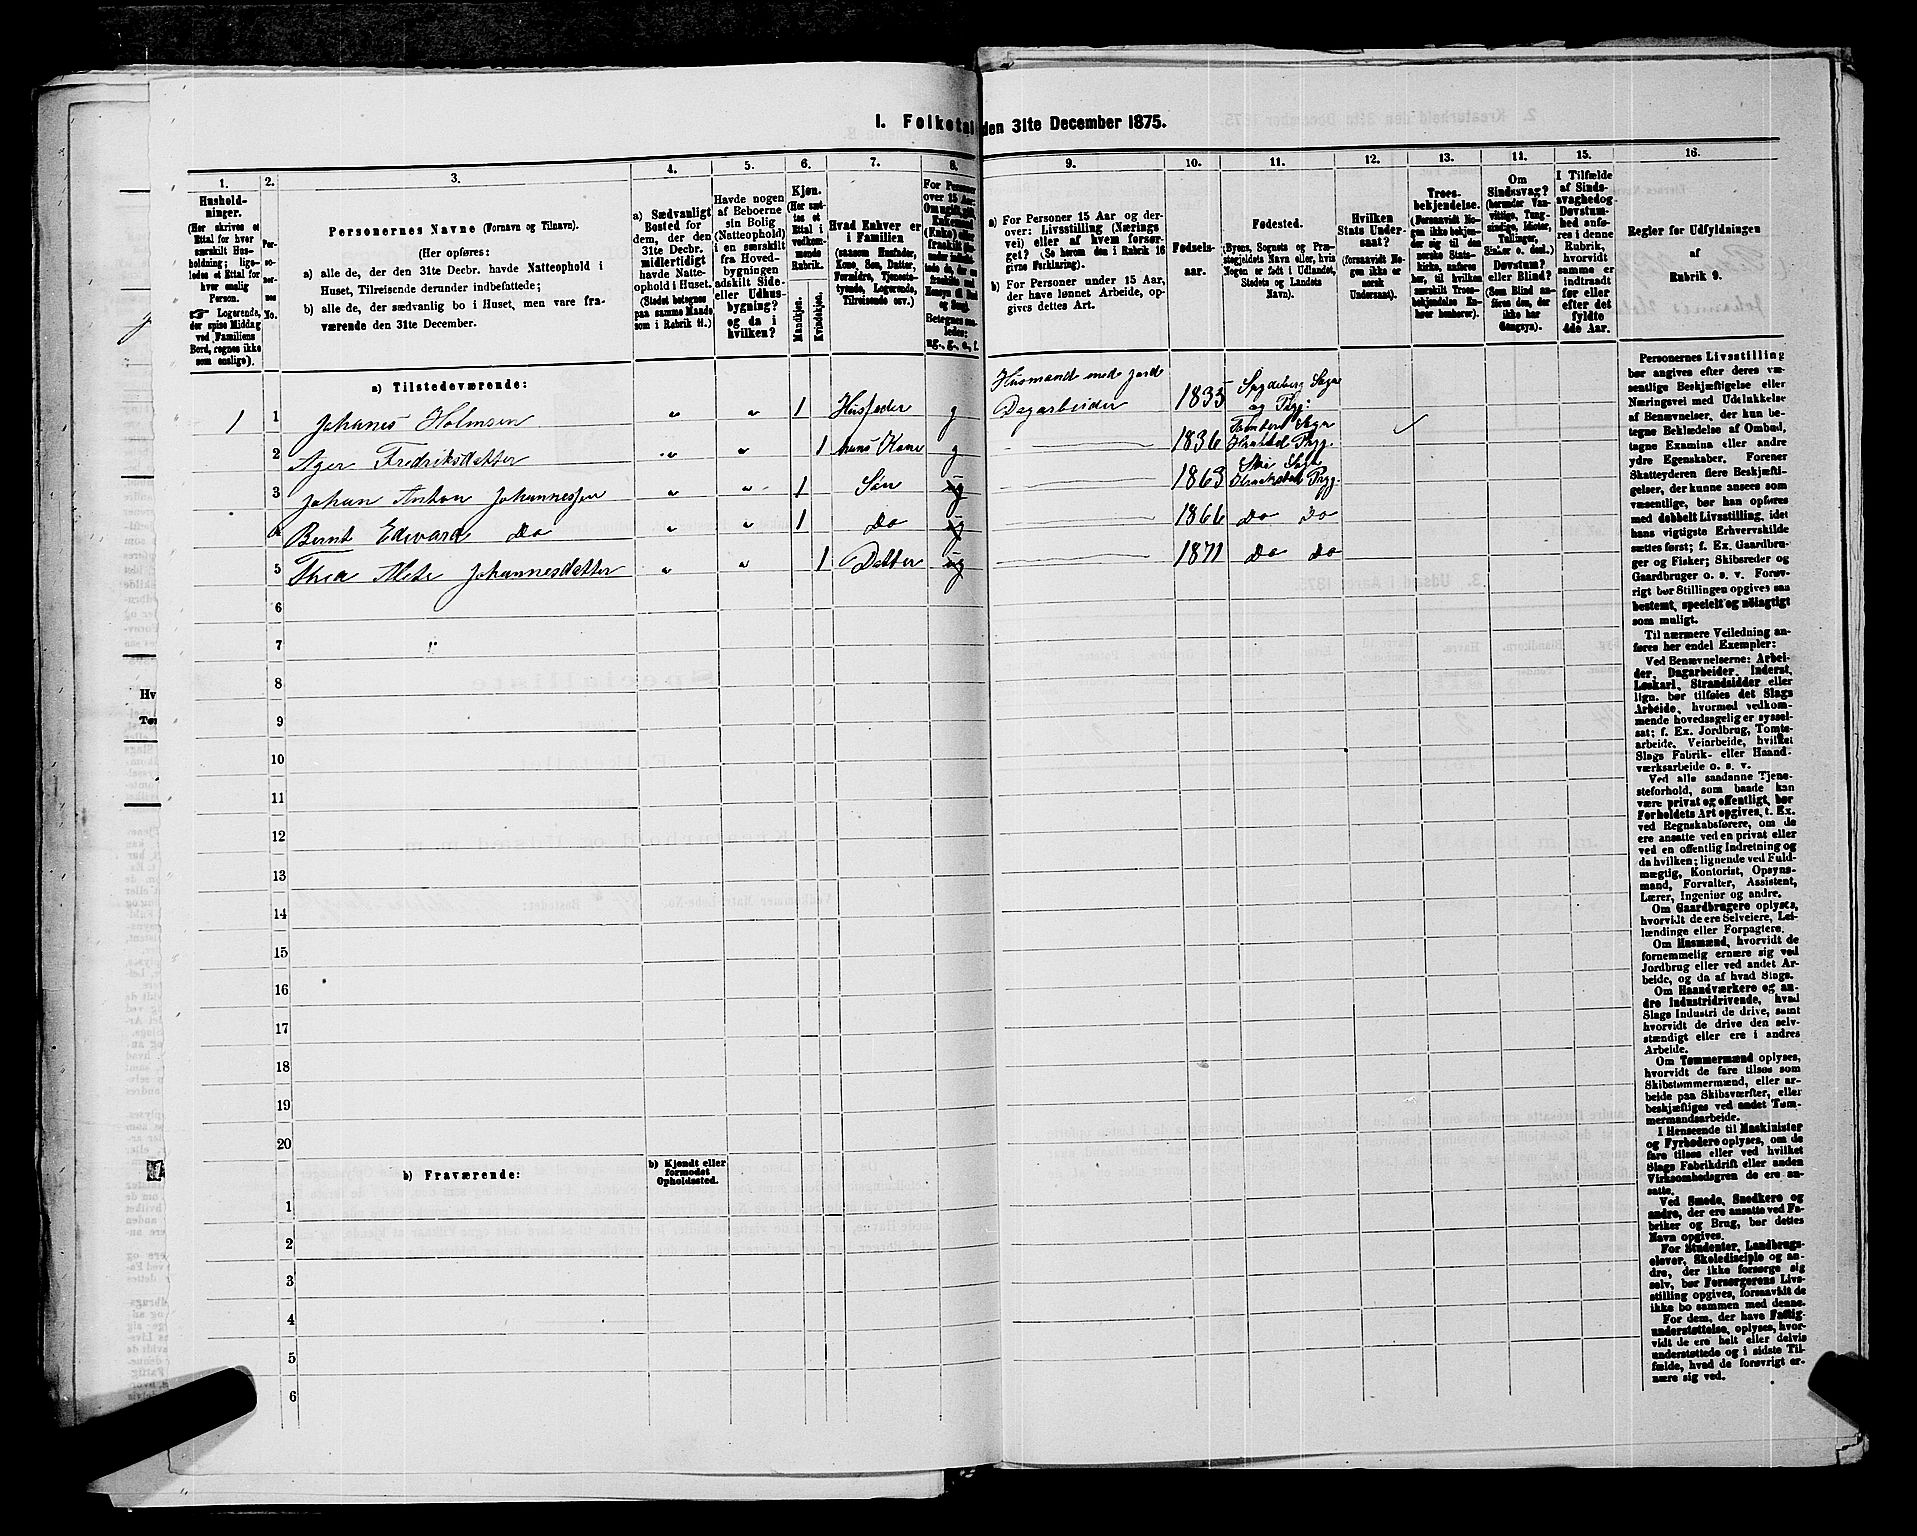 I. Folketal den 31te December 1875.
1. 2. 3. 4. 5. 6. 7. 8. 9. 10. 11. 12. 13. 14. 15. 16.
Hushold-
ninger.
(Her skrives et
Ettal for hver
særskilt Hus-
holdning; lige-
ledes et Ettal for
hver enslig
Person.
☞ Logerende,
der spise Middag
ved Familiens
Bord, regnes ikke
som enslige).
Per-
so-
ner-
nes
No.
Personernes Navne (Fornavn og Tilnavn).
(Her opføres:
a) alle de, der den 31te Decbr. havde Natteophold i
Huset, Tilreisende derunder indbefattede;
b) alle de, der sædvanlig bo i Huset, men vare fra-
værende den 31te December.
a) Sædvanligt
Bosted for
dem, der den
31te Decbr.
midlertidigt
havde Natte-
ophold i Huset.
(Stedet betegnes
paa samme Maade
som i Rubrik 11.)
Havde nogen
af Beboerne
sin Bolig
(Natteophold)
i en særskilt
fra Hoved-
bygningen
adskilt Side-
eller Udhus-
bygning?
og da i
hvilken?
Kjøn.
(Her sæt-
tes et
Ettal i
vedkom-
mende
Rubrik.
Mandkjøn.
Kvindekjøn.
Hvad Enhver er
i Familien
(saasom Husfader,
Kone, Søn, Datter,
Forældre, Tjeneste-
tyende, Logerende,
Tilreisende osv.)
For Personer
over 15 Aar:
a) For Personer 15 Aar og der-
over: Livsstilling (Nærings
vei) eller af hvem forsør-
get? (Se herom den i Rubrik 16
givne Forklaring).
b) For Personer under 15 Aar,
der have lønnet Arbeide, op-
gives dettes Art.
Fødsels-
aar.
Fødested.
(Byens, Sognets og Præ-
stegjeldets Navn eller, hvis
Nogen er født i Udlandet,
Stedets og Landets
Navn).
Hvilken
Stats Under-
saat?
(forsaavidt No-
gen ikke er
norsk
Undersaat).
Troes-
bekjendelse.
(Forsaavidt No-
gen ikke bekjen-
der sig til den
norske Stats-
kirke, anføres
her, til hvilken
særskilt Troes-
bekjendelse En-
hver henhører).
Om
Sindssvag?
(herunder Van-
vittige, Tung-
sindige, Idioter,
Tullinger,
Sinker o. desl.)
Døvstum?
eller Blind?
(Som Blind an-
føres den, der
ikke har
Gangsyn).
I Tilfælde
af Sinds-
svaghed og
Døvstum-
hed anfø-
res i denne
Rubrik,
hvorvidt
samme er
indtraadt
før eller
efter det
fyldte
4de Aar.
Regler for Udfyldningen
af
Rubrik 9.
a) Tilstedeværende:
Husmand med Jord
1 1 Johanes Holmsen " " 1 Husfader g Dagarbeider 1835 Spydeberg Sogn
og Prgj:
2 Ager Fredriksdatter " " 1 hans Kone g 1836
3 Johan Anton Johannessen " " 1 Søn ug 1863 Ski Sogn
Kraakstad Prgj.
4 Bernt Edvard Do " " 1 Do ug 1866 Do Do
5 Thea Mete Johannesdatter " " 1 Datter ug 1871 Do Do
6
7
8
9
10
11
12
13
14
15
16
17
18
19
20
b) Fraværende:
b) Kjendt eller
formodet
Opholdssted.
1
2
3
4
5
6
Personernes Livsstilling
bør angives efter deres væ-
sentlige Beskjæftigelse eller
Næringsvei med Udelukkelse
af Benævnelser, der kun be-
tegne Beklædelse af Ombud,
tagne Examina eller andre
ydre Egenskaber. Forener
Skatteyderen flere Beskjæfti-
gelser, der kunne ansees som
væsentlige, bør han opføres
med dobbelt Livsstilling, idet
hans vigtigste Erhvervskilde
sættes først; f. Ex. Gaardbru-
ger og Fisker; Skibsreder og
Gaardbruger o. s. v. Forøv-
rigt bør Stillingen opgives saa
bestemt, specielt og nøiagtigt
som muligt.
Til nærmere Veiledning an-
føres her endel Exempler:
Ved Benævnelserne: Arbei-
der, Dagarbeider, Inderst,
Løskarl, Strandsidder eller
lign. bør tilføies det Slags
Arbeide, hvormed vedkom-
mende hovedsagelig er syssel-
sat; f. Ex. Jordbrug, Tomte-
arbeide, Veiarbeide, hvilket
Slags Fabrik- eller Haand-
værksarbeide o. s. v.
Ved alle saadanne Tjene-
steforhold, som baade kan
være privat og offentligt, bør
Forholdets Art opgives, t. Ex.
ved Regnskabsførere, om de
ere ansatte ved en privat eller
ved en offentlig Indretning og
da hvilken; lignende ved Fuld-
mægtig, Kontorist, Opsyns-
mand, Forvalter, Assistent,
Lærer, Ingeniør og andre.
Om Gaardbrugere oplyses,
hvorvidt de ere Selveiere, Lei-
lændinge eller Forpagtere.
Om Husmænd, hvorvidt de
fornemmelig ernære sig ved
Jordbrug eller ved andet Ar-
beide, og da af hvad Slags.
Om Haandværkere og an-
dre Industridrivende, hvad
Slags Industri de drive, samt
hvorvidt de drive den selv-
stændigt eller ere i andres
Arbeide.
Om Tømmermænd oplyses,
hvorvidt de fare tilsøs som
Skibstømmermænd, eller ar-
beide paa Skibsværfter, eller
beskjæftiges ved andet Tøm-
mermandsarbeide.
I Henseende til Maskinister
og Fyrbødere oplyses, om de
fare tilsøs eller ved hvilket
Slags Fabrikdrift eller anden
Virksomhedsgren de ere an-
satte.
Ved Smede, Snedkere og
andre, der ere ansatte ved Fa-
briker og Brug, bør dettes
Navn opgives.
For Studenter, Landbrugs-
elever, Skoledisciple og an-
dre, der ikke forsørge sig
selv, bør Forsørgerens Livs-
stilling opgives, forsaavidt de
ikke bo sammen med denne.
For dem, der have Fattig-
understøttelse, oplyses, hvor-
vidt de ere helt eller delvis
understøttede og i sidste Til-
fælde, hvad de forøvrigt er-
nære sig ved.